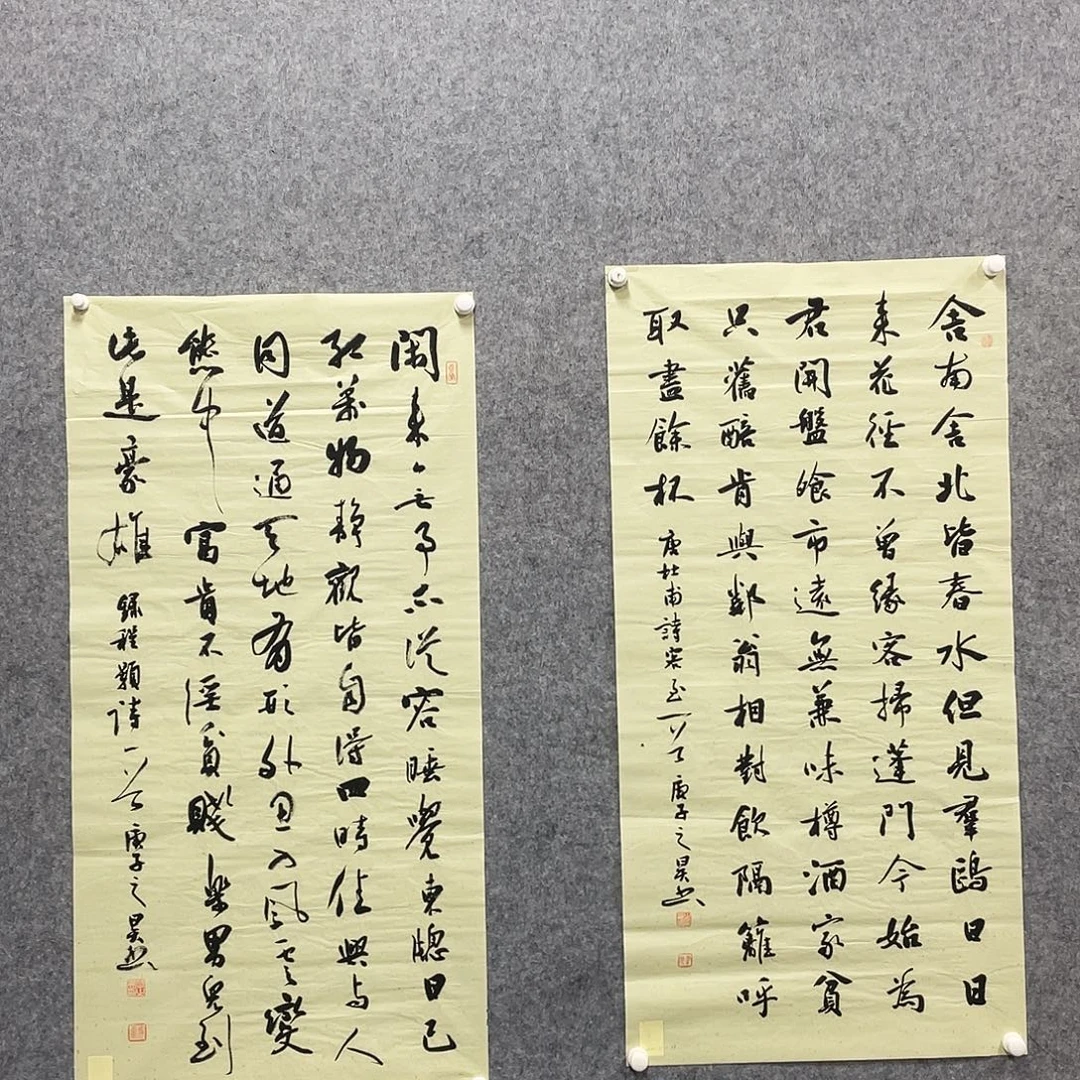 舍南舍北皆春水但見羣鷗日日
来花徑不曾緣客掃蓬門今始為
君開盤飧市遠無兼味樽酒家貧
只舊醅肯與鄰翁相對飲隔籬呼
取盡餘杯 唐杜甫詩客至一首 庚子之昊书
閑来無事不從容睡覺東窗日已
紅萬物静觀皆自得四時佳興与人
同道通天地有形外思入風雲變
態中富貴不淫貧賤樂男兒到
此是豪雄 録程顥詩一首 庚子之昊书